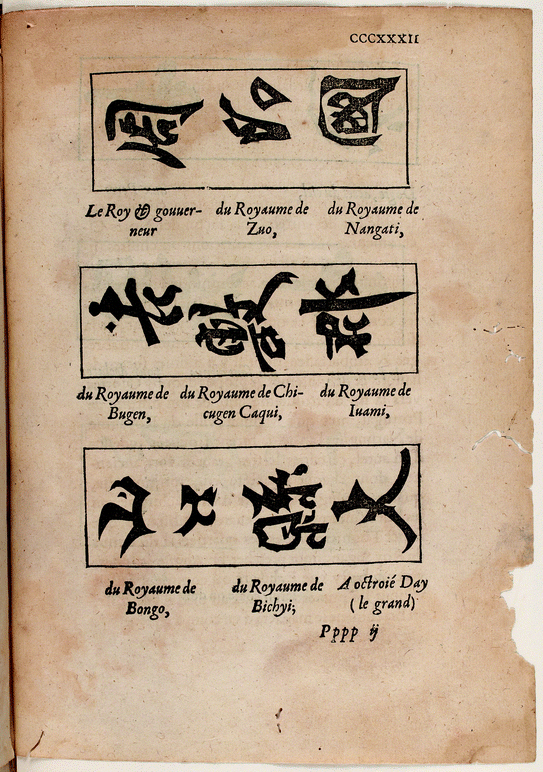 CCCXXXII
周防國
Le Roy & gouuer-
neur
du Royaume de
Zuo,
du Royaume de
Nangati,
吉敷郡
du Royaume de
Bugen,
du Royaume de Chi-
cugen Caqui,
du Royaume de
Iuami,
山口縣大
du Royaume de
Bongo,
du Royaume de
Bichyi;
A octroié Day
(le grand)
Pppp ij